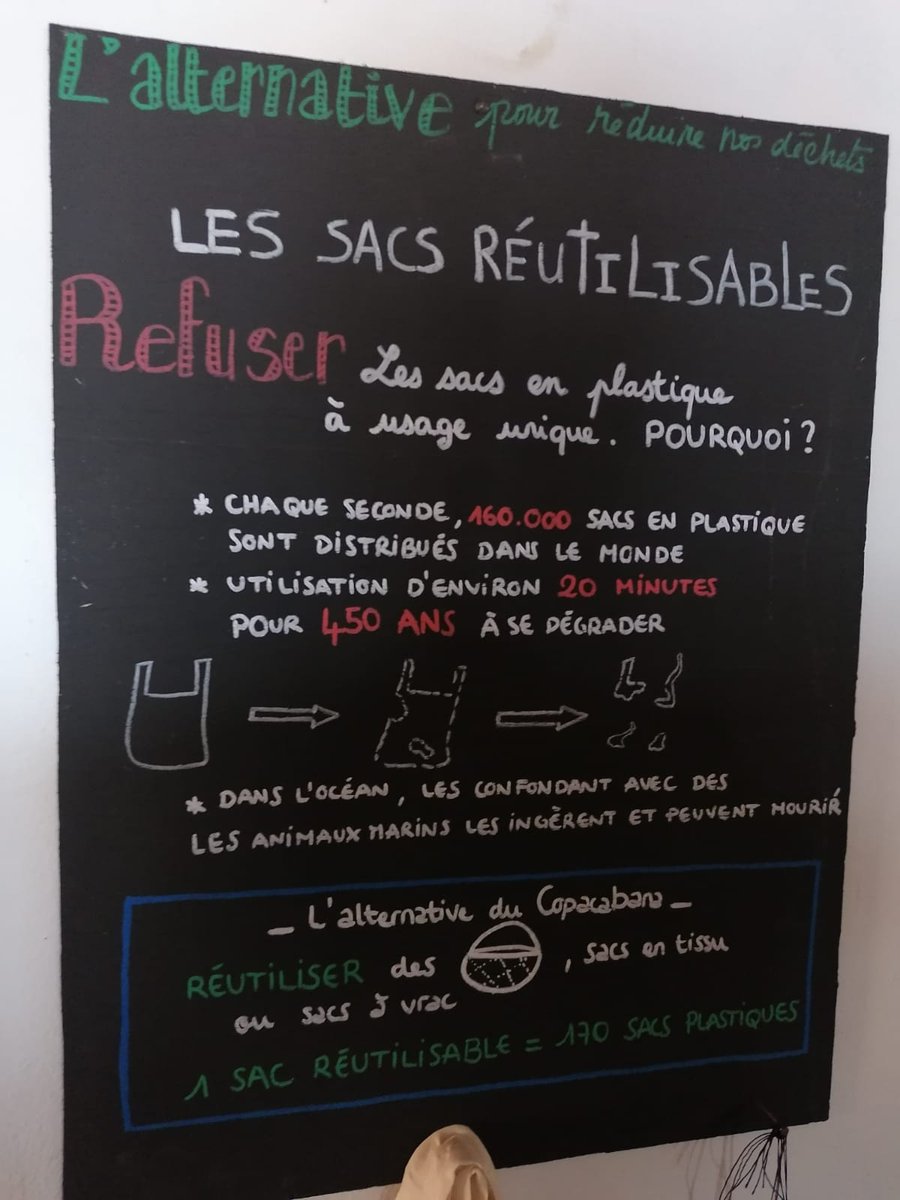 L'alternative pour réduire nos déchets
LES SACS RÉUTILISABLES
Refuser Les sacs en plastique
à usage unique. POURQUOI?
* CHAQUE SECONDE, 160.000 SACS EN PLASTIQUE
SONT DISTRIBUÉS DANS LE MONDE
* UTILISATION D'ENVIRON 20 MINUTES
POUR 450 ANS À SE DÉGRADER
* DANS L'OCÉAN, LES CONFONDANT AVEC DES
LES ANIMAUX MARINS LES INGÈRENT ET PEUVENT MOURIR
_ L'alternative du Copacabana _
RÉUTILISER des , sacs en tissu
ou sacs à vrac
1 SAC RÉUTILISABLE = 170 SACS PLASTIQUES